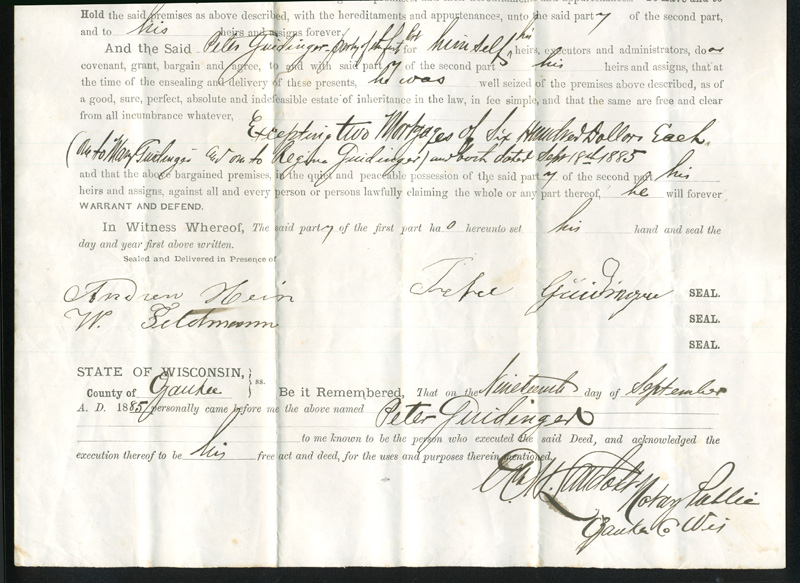 Hold the said premises as above described, with the hereditaments and appurtenances, unto the said party of the second part,
and to his heirs and assigns forever.
And the Said Peter Guidinger party of the first part for himself, his heirs, executors and administrators, does
covenant, grant, bargain and agree, to and with said party of the second part his heirs and assigns, that at
the time of the ensealing and delivery of these presents, he was well seized of the premises above described, as of
a good, sure, perfect, absolute and indefeasible estate of inheritance in the law, in fee simple, and that the same are free and clear
from all incumbrance whatever,
Excepting two Mortgages of Six Hundred Dollars Each
(on to Mary Guidinger and on to Regina Guidinger) and both dated Sept 18th 1885
and that the above bargained premises, in the quiet and peaceable possession of the said party of the second part his
heirs and assigns, against all and every person or persons lawfully claiming the whole or any part thereof, he will forever
WARRANT AND DEFEND.
In Witness Whereof, The said party of the first part has hereunto set his hand and seal the
day and year first above written.
Sealed and Delivered in Presence of
Andrew Hein
Guidinger SEAL.
W. Feldmann SEAL.
SEAL.
STATE OF WISCONSIN, } ss.
County of Ozaukee
Be it Remembered, That on the Nineteenth day of September
A. D. 1885, personally came before me the above named Peter Guidinger
to me known to be the person who executed the said Deed, and acknowledged the
execution thereof to be his free act and deed, for the uses and purposes therein mentioned,
Notary Public
Ozaukee Co Wis